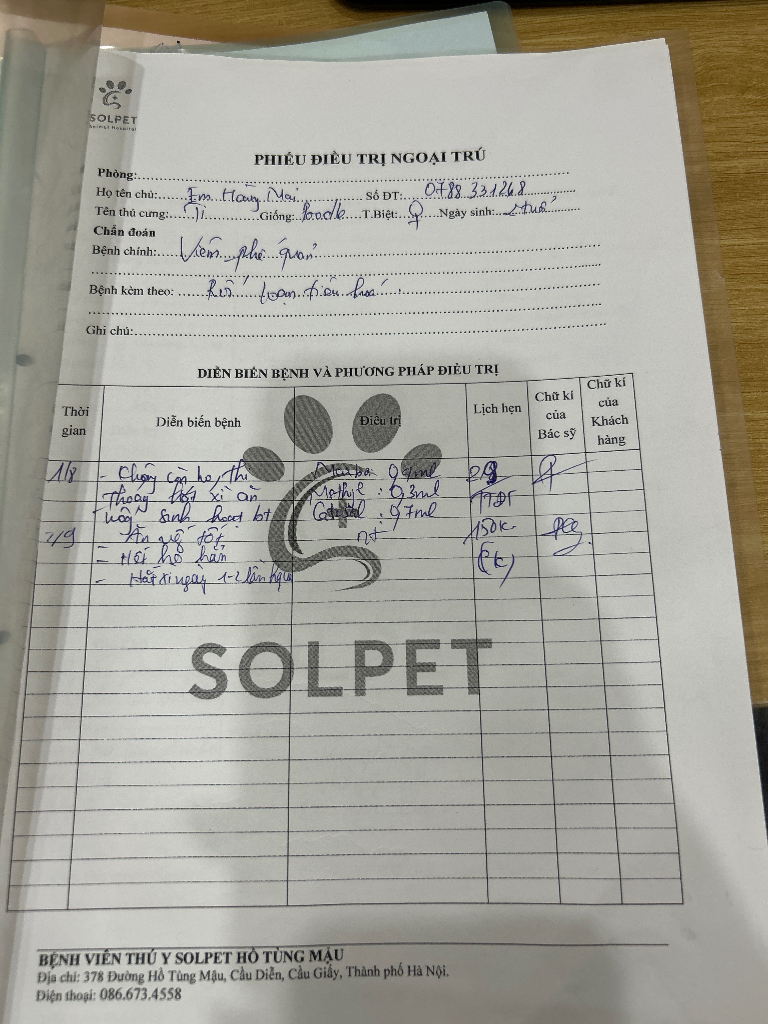 SOLPET
Animal Hospital
PHIẾU ĐIỀU TRỊ NGOẠI TRÚ
Phòng:
Họ tên chủ: Em Hằng Mai Số ĐT: 0788 331268
Tên thú cưng: Ti Giống: Poodle T.Biệt: ♀ Ngày sinh: 2 tuổi
Chẩn đoán
Bệnh chính: Viêm phế quản
Bệnh kèm theo: Rối loạn tiêu hoá
Ghi chú:
DIỄN BIẾN BỆNH VÀ PHƯƠNG PHÁP ĐIỀU TRỊ
Thời gian Diễn biến bệnh Điều trị Lịch hẹn Chữ kí của Bác sỹ Chữ kí của Khách hàng
1/9 - Chó còn ho, thi 0,7ml 2/9
thoảng hắt xì ăn : 0,3ml TTĐT
uống sinh hoạt bt Catosal : 0,7ml
2/9 - Ăn uống tốt nt 150k
- Hết ho hẳn (ck)
- Hắt xì ngày 1-2 lần
SOLPET
BỆNH VIỆN THÚ Y SOLPET HỒ TÙNG MẬU
Địa chỉ: 378 Đường Hồ Tùng Mậu, Cầu Diễn, Cầu Giấy, Thành phố Hà Nội.
Điện thoại: 086.673.4558